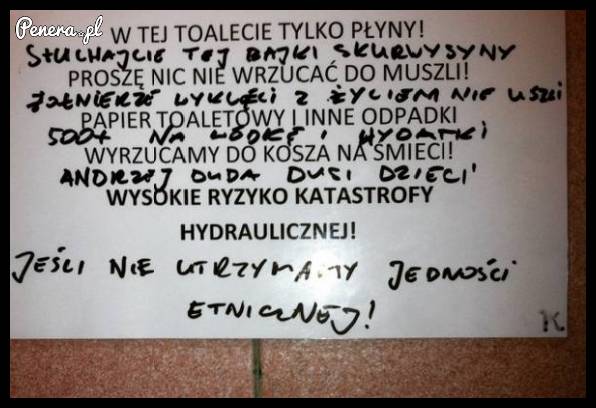 Penera.pl
W TEJ TOALECIE TYLKO PŁYNY!
SŁUCHAJCIE TEJ BAJKI SKURWYSYNY
PROSZĘ NIC NIE WRZUCAĆ DO MUSZLI!
ŻOŁNIERZE WYKLĘCI Z ŻYCIEM NIE USZLI
PAPIER TOALETOWY I INNE ODPADKI
500+ NA WÓDKĘ I WYDATKI
WYRZUCAMY DO KOSZA NA ŚMIECI!
ANDRZEJ DUDA DUSI DZIECI
WYSOKIE RYZYKO KATASTROFY
HYDRAULICZNEJ!
JEŚLI NIE UTRZYMAMY JEDNOŚCI
ETNICZNEJ!
K